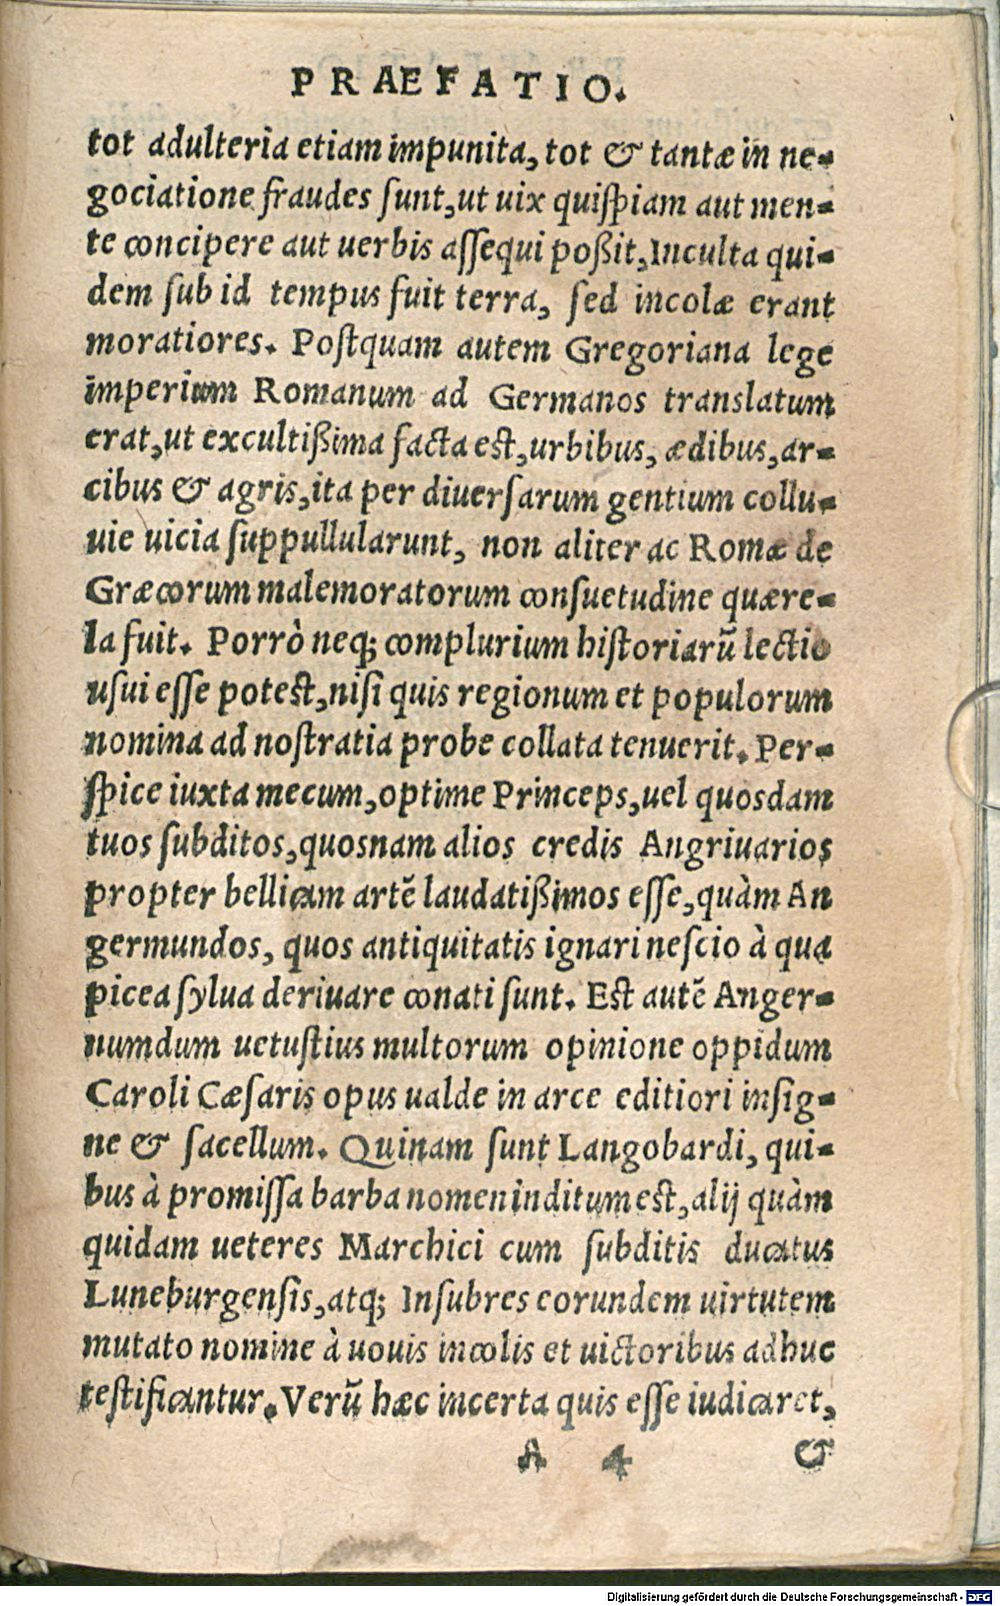 PRAEFATIO.
tot adulteria etiam impunita, tot & tantæ in ne-
gociatione fraudes sunt, ut uix quiſpiam aut men-
te concipere aut uerbis aſſequi poßit, Inculta qui-
dem ſub id tempus fuit terra, ſed incolæ erant
moratiores. Poſtquam autem Gregoriana lege
imperium Romanum ad Germanos translatum
erat, ut excultißima facta eſt, urbibus, ædibus, ar-
cibus & agris, ita per diuerſarum gentium collu-
uie uicia ſuppullularunt, non aliter ac Romæ de
Græcorum malemoratorum conſuetudine quære-
la fuit. Porrò neq; complurium hiſtoriarũ lectio
uſui eſſe poteſt, niſi quis regionum et populorum
nomina ad noſtratia probe collata tenuerit. Per-
ſpice iuxta mecum, optime Princeps, uel quosdam
tuos ſubditos, quosnam alios credis Angriuarios
propter bellicam artẽ laudatißimos eſſe, quàm An
germundos, quos antiquitatis ignari neſcio à qua
picea ſylua deriuare conati ſunt. Eſt autẽ Anger-
numdum uetuſtius multorum opinione oppidum
Caroli Cæſaris opus ualde in arce editiori inſig-
ne & ſacellum. Quinam ſunt Langobardi, qui-
bus à promiſſa barba nomen inditum eſt, alij quàm
quidam ueteres Marchici cum ſubditis ducatus
Luneburgenſis, atq; Inſubres eorundem uirtutem
mutato nomine à uouis incolis et uictoribus adhuc
teſtificantur. Verũ hæc incerta quis eſſe iudicaret,
A 4 &
Digitalisierung gefördert durch die Deutsche Forschungsgemeinschaft - DFG